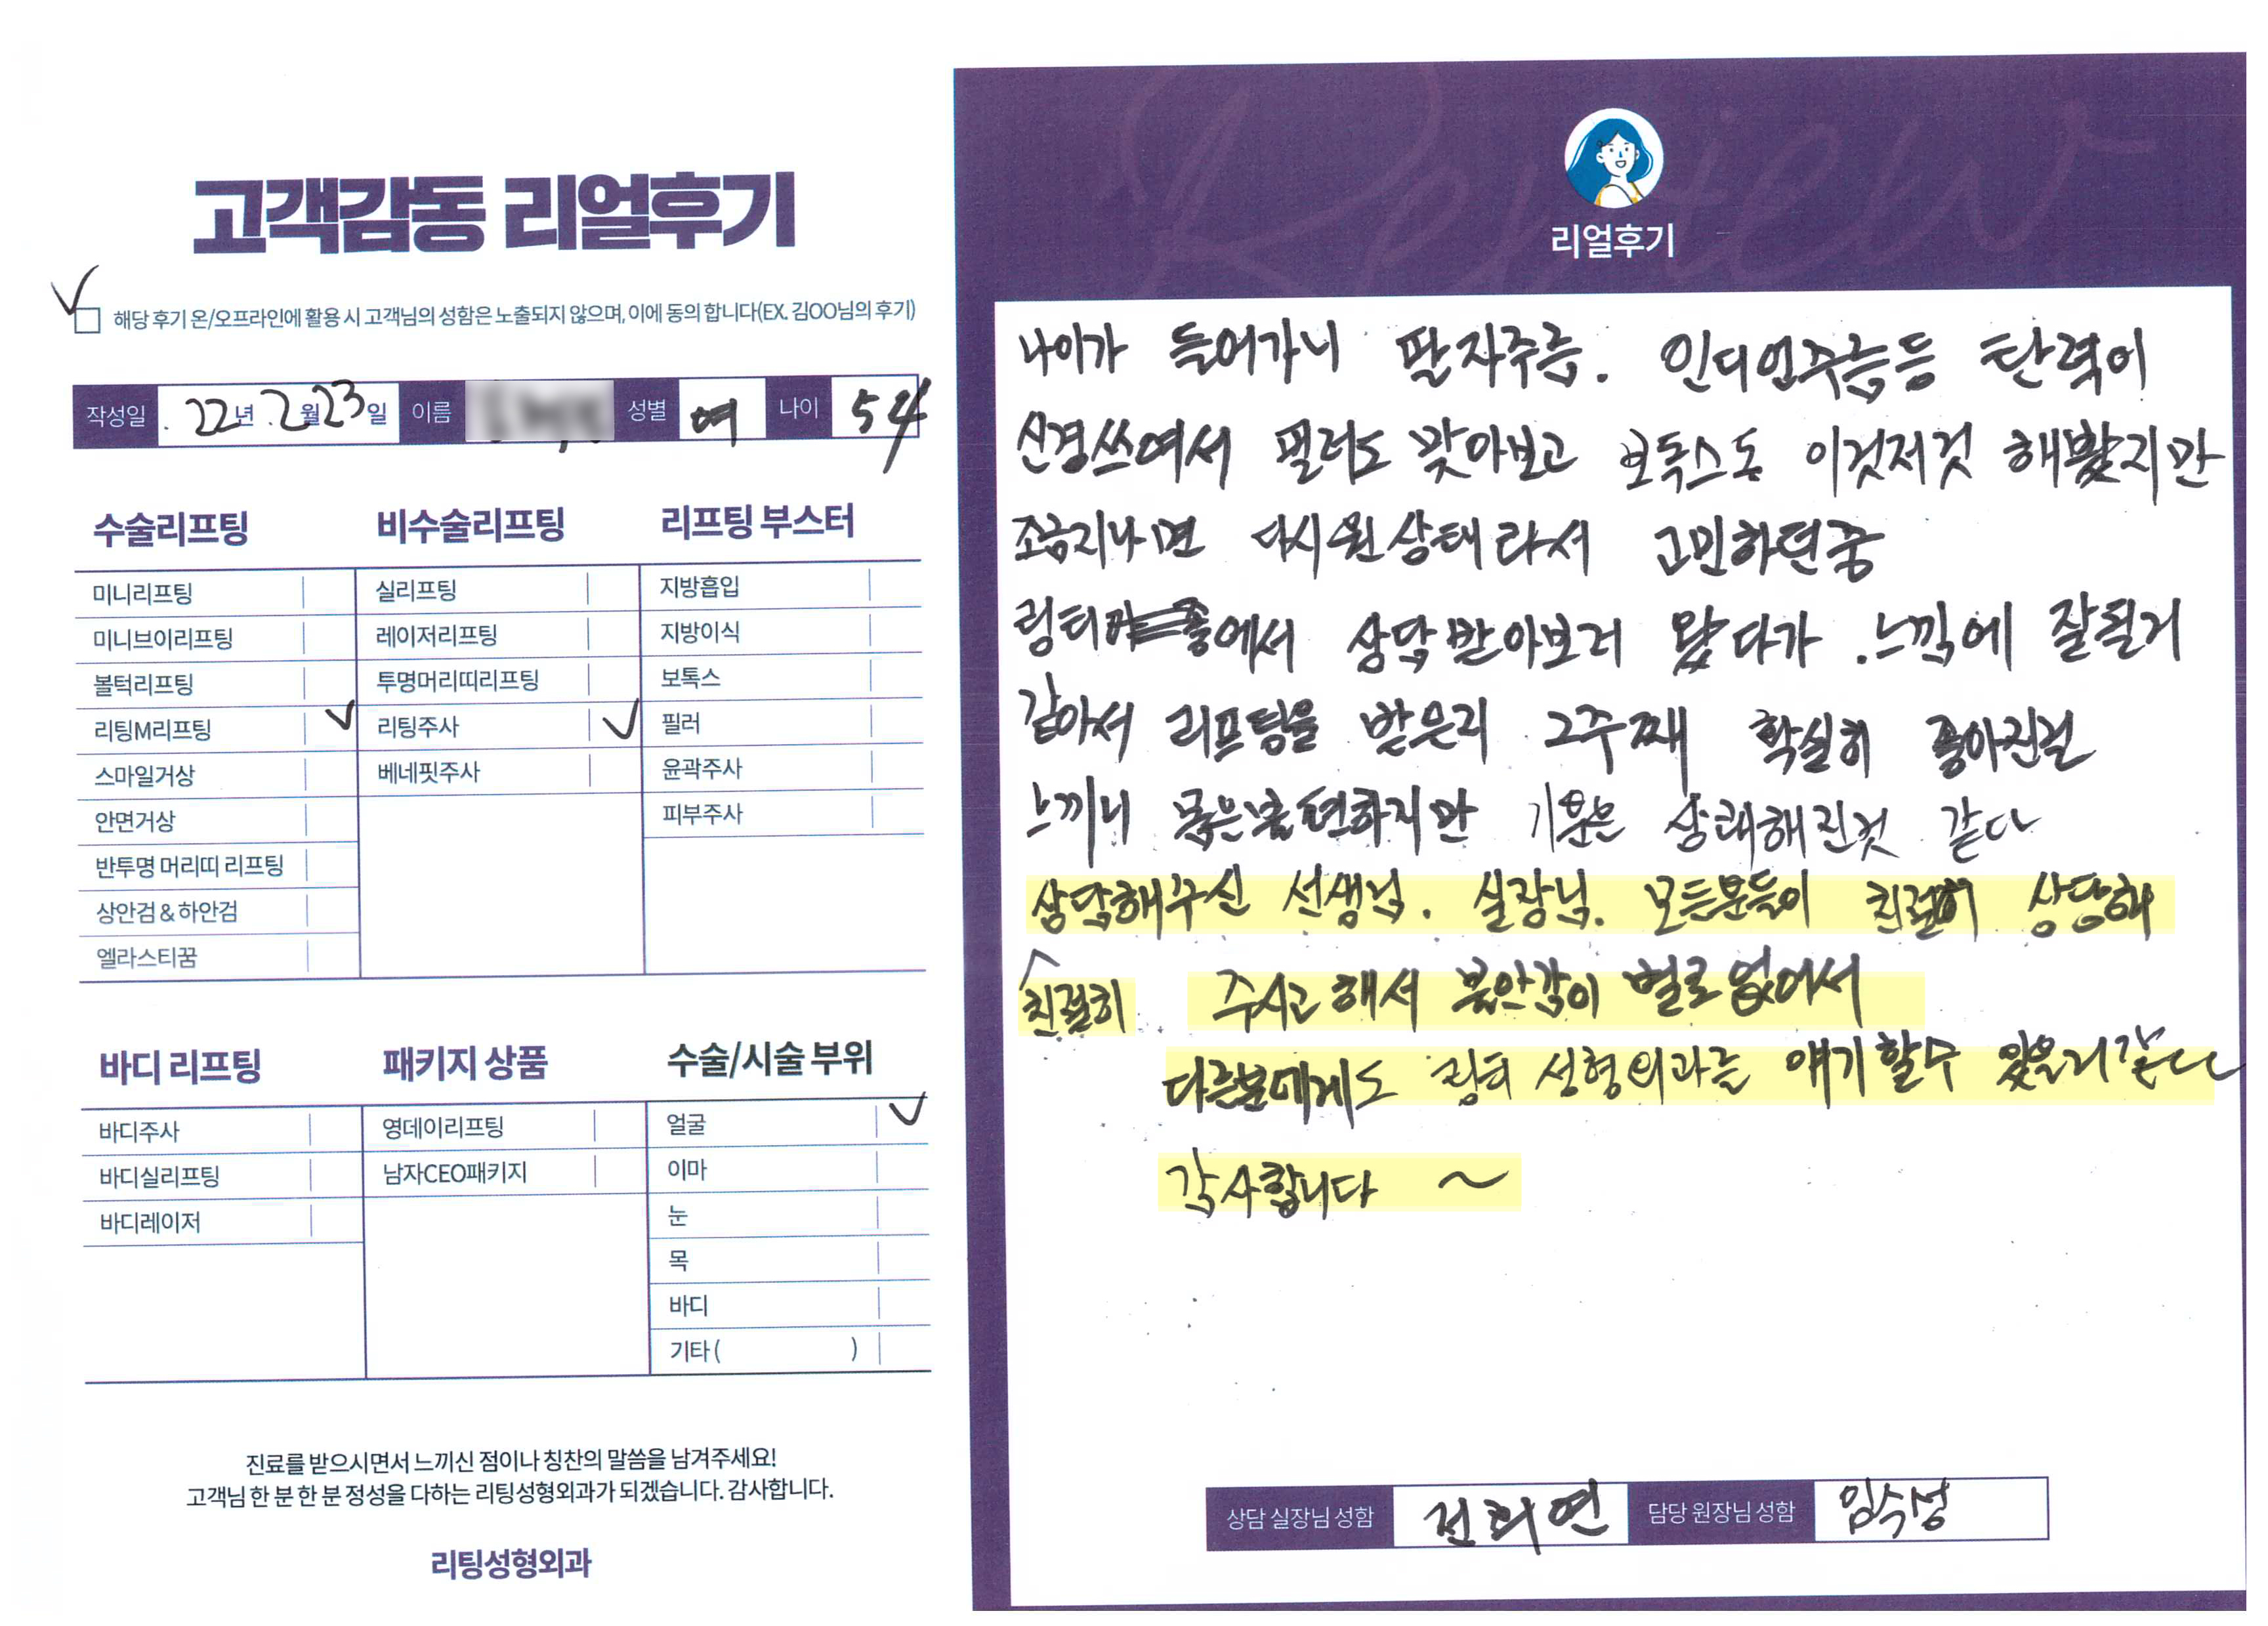 고객감동 리얼후기
해당 후기 온/오프라인에 활용 시 고객님의 성함은 노출되지 않으며, 이에 동의 합니다(EX. 김OO님의 후기)
작성일 22년 2월 23일 이름 성별 여 나이 54
수술리프팅
미니리프팅
미니브이리프팅
볼턱리프팅
리팅M리프팅
스마일거상
안면거상
반투명 머리띠 리프팅
상안검 & 하안검
엘라스티꿈
비수술리프팅
실리프팅
레이저리프팅
투명머리띠리프팅
리팅주사
베네핏주사
리프팅 부스터
지방흡입
지방이식
보톡스
필러
윤곽주사
피부주사
바디 리프팅
바디주사
바디실리프팅
바디레이저
패키지 상품
영데이리프팅
남자CEO패키지
수술/시술 부위
얼굴
이마
눈
목
바디
기타 ( )
진료를 받으시면서 느끼신 점이나 칭찬의 말씀을 남겨주세요!
고객님 한 분 한 분 정성을 다하는 리팅성형외과가 되겠습니다. 감사합니다.
리팅성형외과
Review
리얼후기
나이가 들어가니 팔자주름. 인디언주름등 탄력이
신경쓰여서 필러도 맞아보고 보톡스도 이것저것 해봤지만
조금지나면 다시원상태라서 고민하던중
에서 상담받아보러 왔다가. 느낌에 잘될거
같아서 리프팅을 받은지 2주째 확실히 좋아진걸
느끼니 몸은불편하지만 기분은 상쾌해진것 같다
상담해주신 선생님. 실장님. 모든분들이 친절히 상담해
친절히 주시고해서 불안감이 별로없어서
다른분에게도 성형외과를 얘기할수 있을거같다
감사합니다 ~
상담 실장님 성함 전희연 담당 원장님 성함 임수성